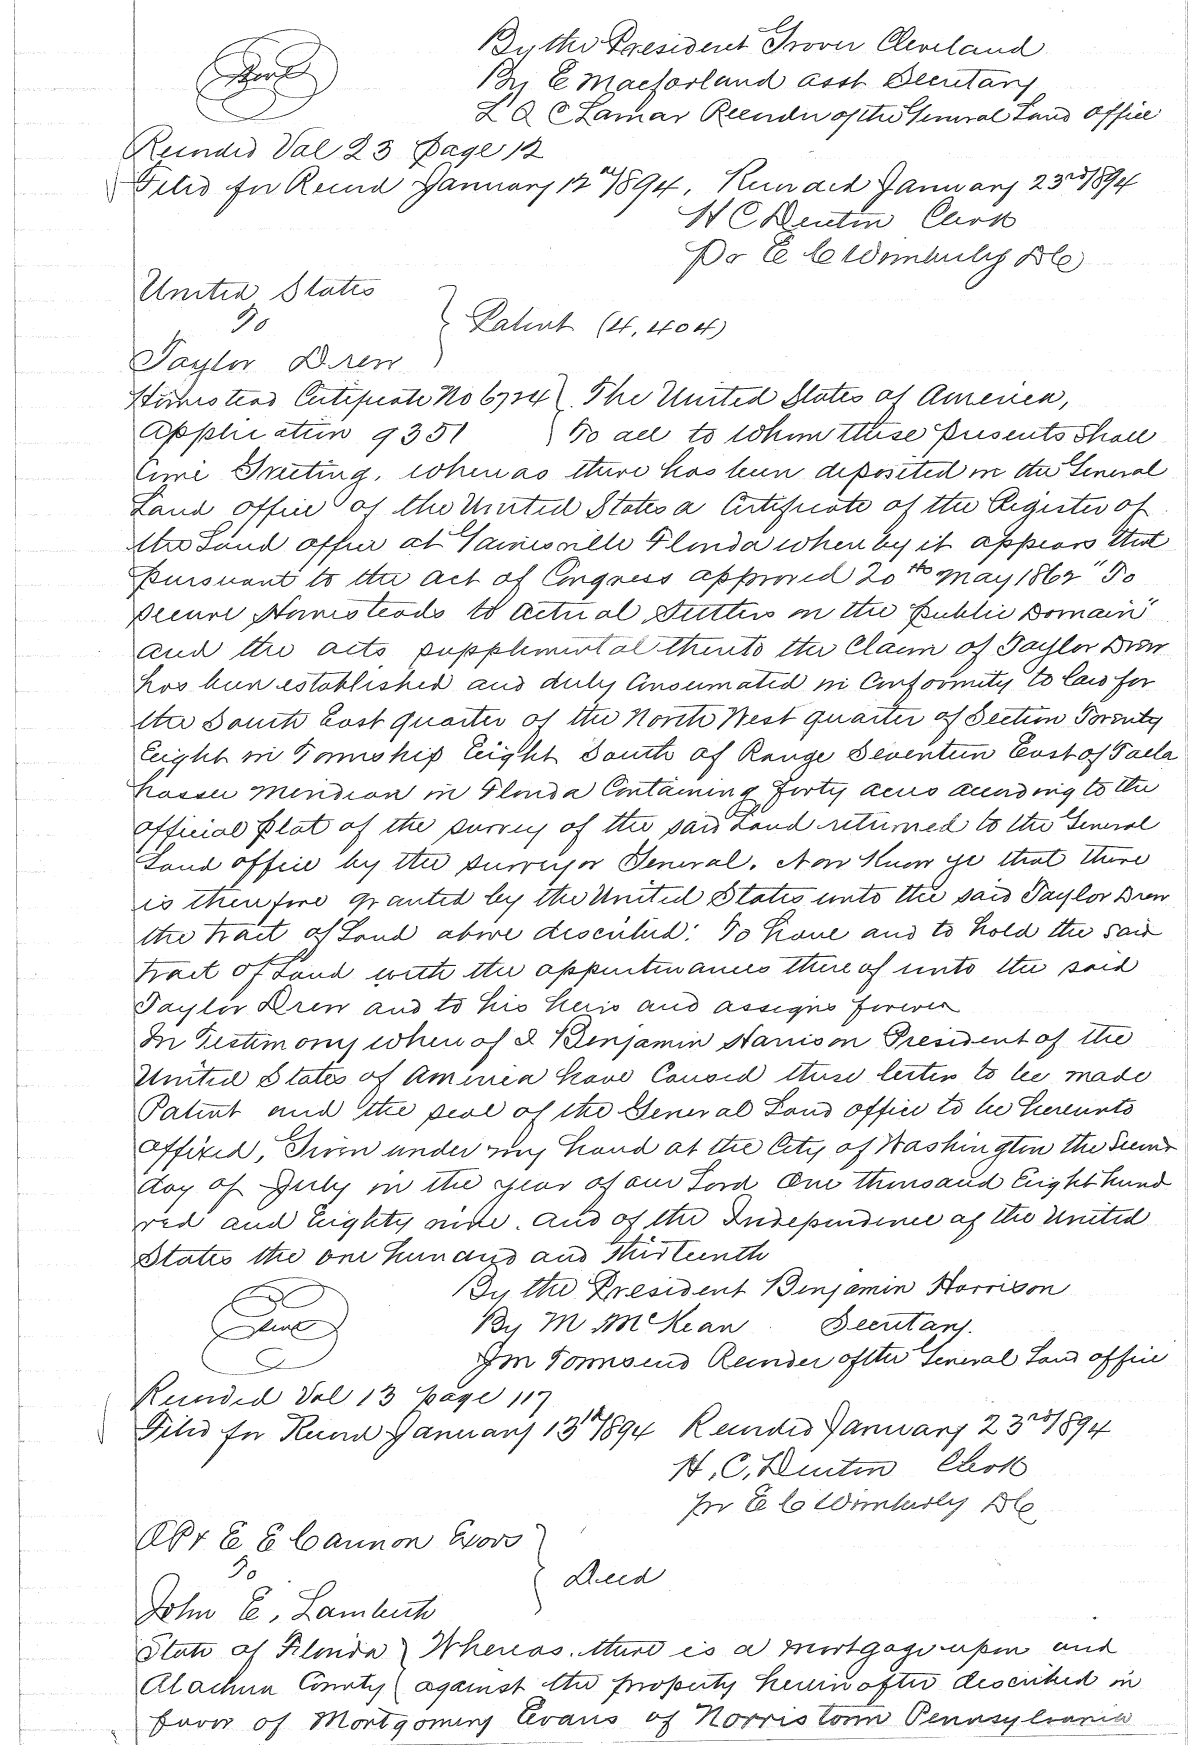 By the President Grover Cleveland
Seal By E Macforland asst Secretary
L Q C Lamar Recorder of the General Land Office
Recorded Vol 23 Page 12
Filed for Record January 12th/1894, Recorded January 23rd/1894
H C Denton Clerk
Pr E C Wimberly DC
United States
To
Patent (4,404)
Taylor Drew
Homestead Certificate No 6724 The United States of America,
Application 9351 To all to whom these presents shall
Come Greeting, whereas there has been deposited in the General
Land office of the United States a Certificate of the Register of
the Land office at Gainesville Florida whereby it appears that
pursuant to the act of Congress approved 20th May 1862 "To
secure Homesteads to actual Settlers on the public Domain"
and the acts supplemental thereto the Claim of Taylor Drew
has been established and duly Consumated in Conformity to law for
the South East quarter of the North West quarter of Section Twenty
Eight in Township Eight South of Range Seventeen East of Talla
hassee meridian in Florida Containing forty acres according to the
official plat of the survey of the said Land returned to the General
Land office by the surveyor General. Now Know ye that there
is therefore granted by the United States unto the said Taylor Drew
the tract of Land above described: To have and to hold the said
tract of Land with the appurtenances thereof unto the said
Taylor Drew and to his heirs and assigns forever
In Testimony whereof I Benjamin Harrison President of the
United States of America have Caused these letters to be made
Patent and the seal of the General Land office to be hereunto
affixed, Given under my hand at the City of Washington the Second
day of July in the year of our Lord One thousand Eight hund
red and Eighty nine. and of the Independence of the United
States the one hundred and thirteenth
By the President Benjamin Harrison
Seal By M McKean Secretary.
Jm Townsend Recorder of the General Land office
Recorded Vol 13 page 117
Filed for Record January 13th/1894 Recorded January 23rd/1894
H, C, Denton Clerk
pr E C Wimberly DC
E E Cannon Exors
To
Deed
John E, Lambeth
State of Florida Whereas. there is a mortgage upon and
Alachua County against the property herein after described in
favor of Montgomery Evans of Norristown Pennsylvania